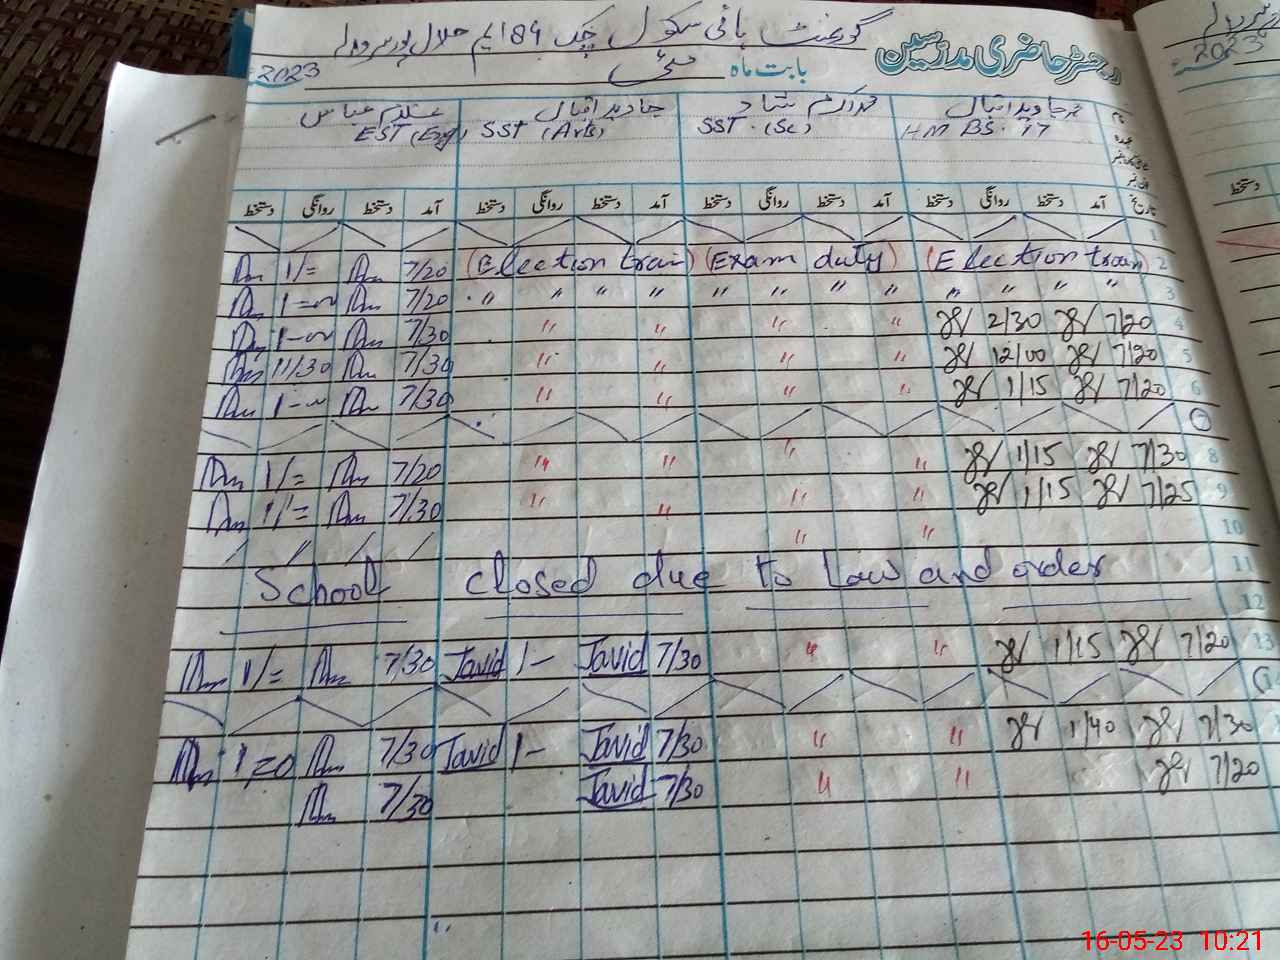 گورنمنٹ ہائی سکول چک 184 ایم
رجسٹر حاضری مدرسین بابت ماہ مئی 2023
محمد جاوید اقبال محمد اکرم شاد جاوید اقبال غلام عباس
HM BS. 17 SST (Sc) SST (Arts) EST (Eng)
تاریخ آمد دستخط روانگی دستخط آمد دستخط روانگی دستخط آمد دستخط روانگی دستخط آمد دستخط روانگی دستخط
1
1/= 7/20 (Election train) (Exam duty) (Election train) 2
1 7/20 " " " " " " " " " " " " 3
1 7/30 " " " " 2/30 7/20 4
11/30 7/30 " " " " 12/00 7/20 5
1 7/30 " " " " 1/15 7/20 6
7
1/= 7/20 " " " " 1/15 7/30 8
1/= 7/30 " " " " 1/15 7/25 9
" " 10
School closed due to law and order 11
12
1/= 7/30 Javid 1- Javid 7/30 " " 1/15 7/20 13
14
7/30 Javid 1- Javid 7/30 " " 1/40 7/30
7/30 Javid 7/30 " " 7/20
16-05-23 10:21
2023
دستخط